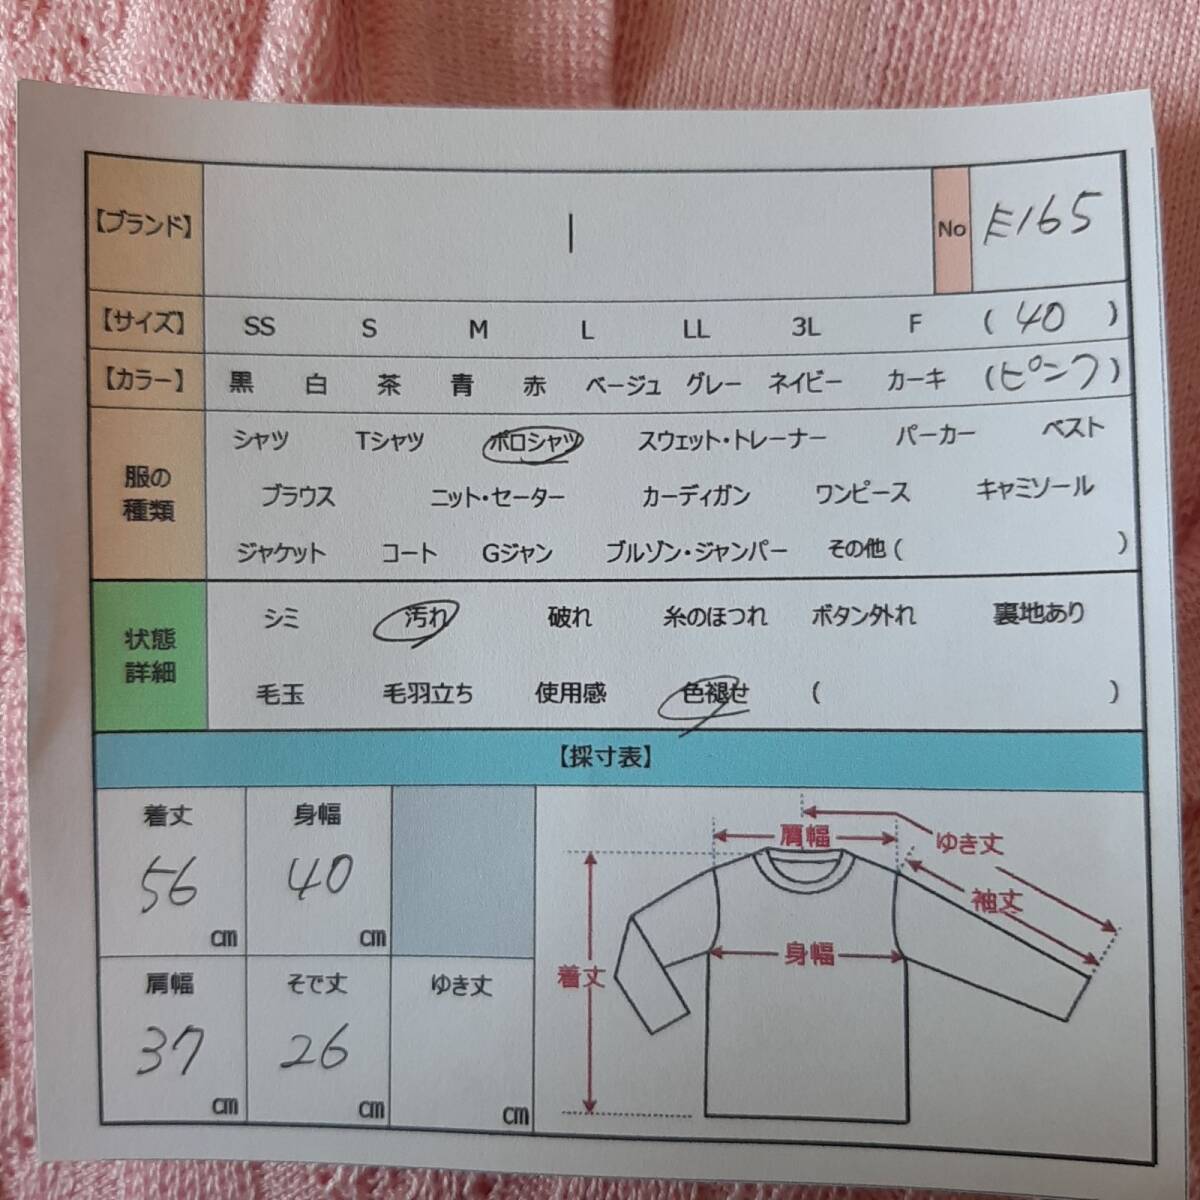 【ブランド】 | No E165
【サイズ】 SS S M L LL 3L F ( 40 )
【カラー】 黒 白 茶 青 赤 ベージュ グレー ネイビー カーキ (ピンク)
服の種類
シャツ Tシャツ ポロシャツ スウェット・トレーナー パーカー ベスト
ブラウス ニット・セーター カーディガン ワンピース キャミソール
ジャケット コート Gジャン ブルゾン・ジャンパー その他 ( )
状態詳細
シミ 汚れ 破れ 糸のほつれ ボタン外れ 裏地あり
毛玉 毛羽立ち 使用感 色褪せ ( )
【採寸表】
着丈 身幅
56 40
cm cm
肩幅 そで丈 ゆき丈
37 26
cm cm cm
肩幅
ゆき丈
袖丈
身幅
着丈